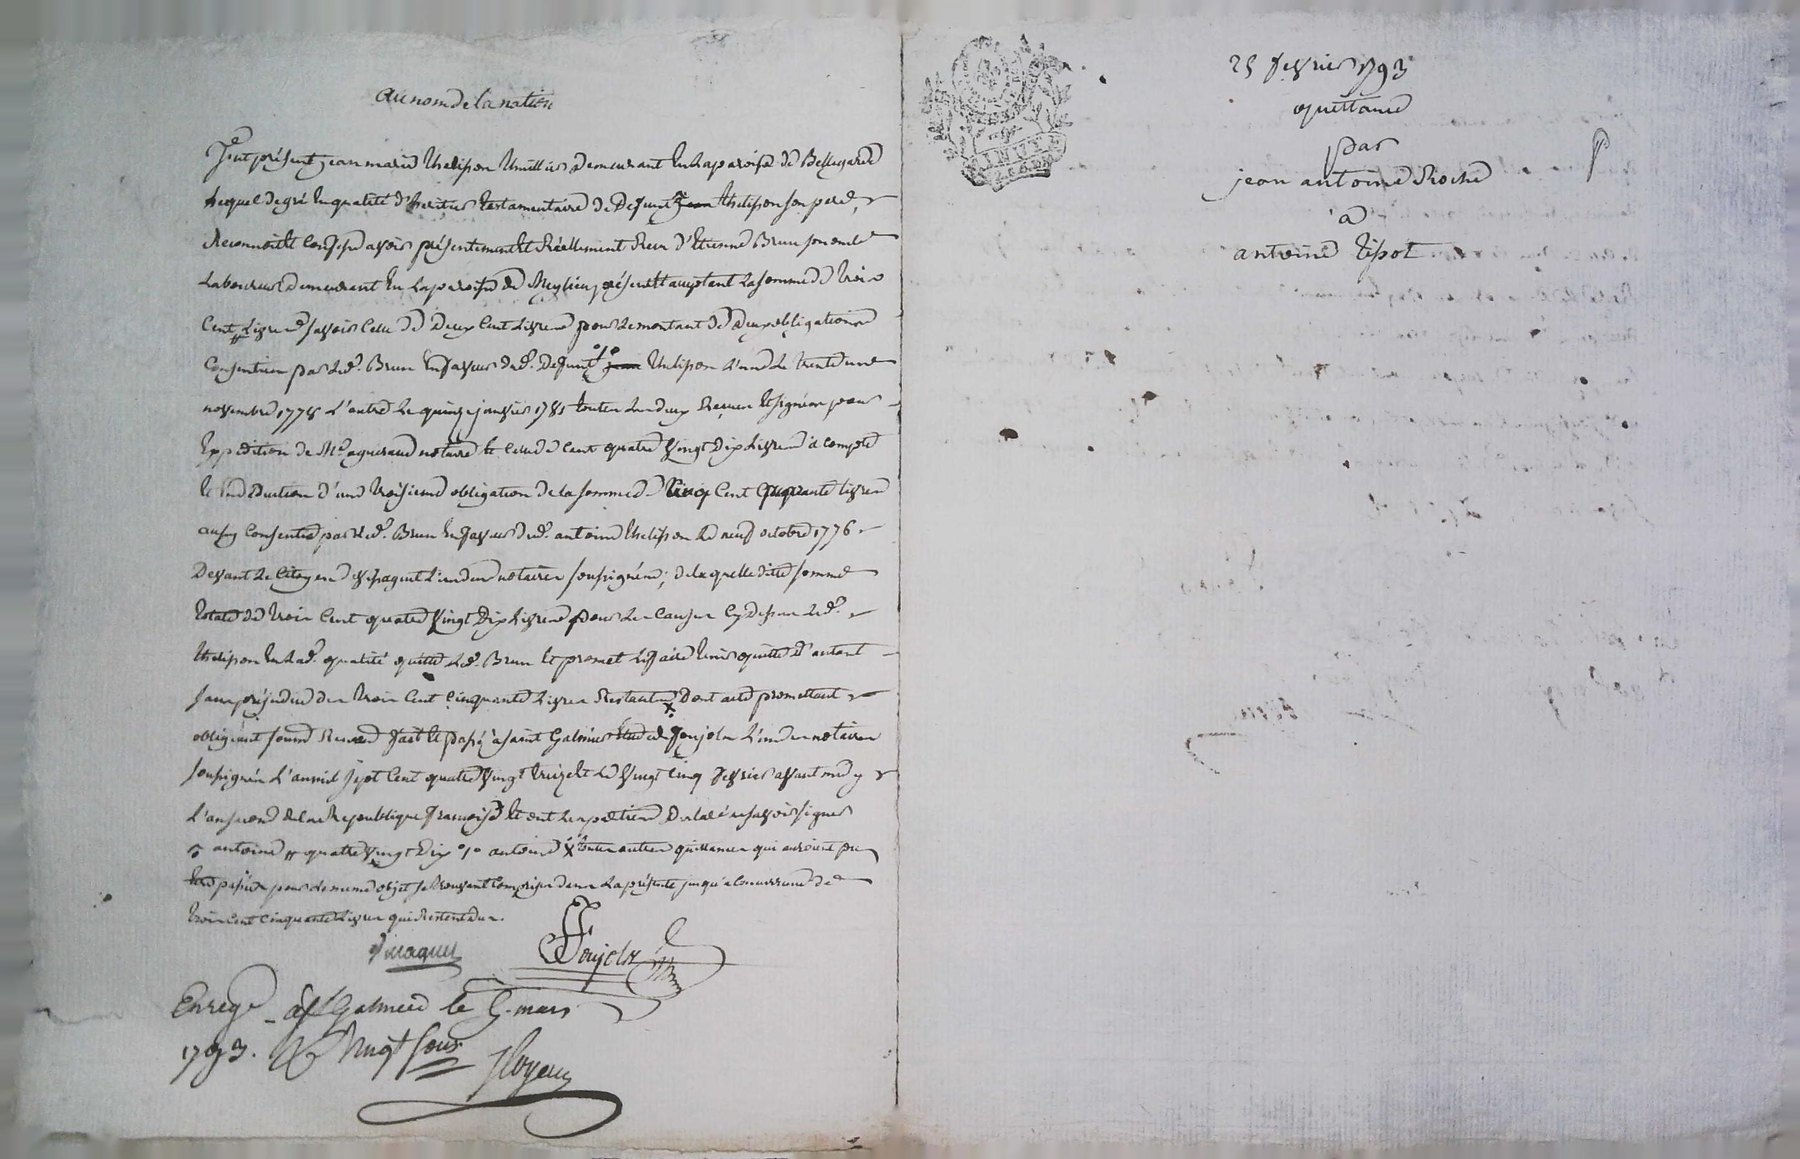 au nom de la nation
fut présent jean marie thelisson demeurant en la paroisse de Bellegarde
lequel de gré en qualité d'heritier testamentaire de defunt jean thelisson son pere,
reconnoit et confesse avoir présentement et réellement reçu d'Etienne Brun
Laboureur demeurant en la paroisse de présent et acceptant la somme de trois
cent livres savoir celle de deux cent livres pour le montant de deux obligations
consenties par led. Brun en faveur dud. defunt jean thelisson l'une le trente une
novembre 1778 l'autre le quinze janvier 1781 toutes les deux reçues et signées pour
expedition de Me notaire et celle de cent quatre vingt dix livres a compte
et en deduction d'une troisieme obligation de la somme de cinq cent quarante livres
aussy consentie par led. Brun en faveur dud. antoine thelisson le neuf octobre 1776
devant le citoyen l'un des notaires soussignés; de laquelle ditte somme
totale de trois cent quatre vingt dix livres pour les causes cy dessus led.
thelisson en lad. qualité quitte led. Brun et promet le faire tenir quitte d'autant
sans préjudice des trois cent cinquante livres restantes Dont acte promettant
obligeant soumd renond fait et passé à saint Galmier etude de foujols l'un des notaires
soussignés l'année sept cent quatre vingt treize et le vingt cinq fevrier avant midy
l'an second de la republique françoise et ont les parties declaré ne savoir signer
antoine quatre vingt dix antoine toutes autres quittances qui auroient pu
etre passées pour le meme objet se trouvant comprises dans la présente jusqu'a concurrence de
trois cent cinquante livres qui restent dues.
foujols
Enregé à st Galmier le 5. mars
1793. R vingt sous
25 fevrier 1793
quittance
par
jean antoine Rioche
a
antoine tissot